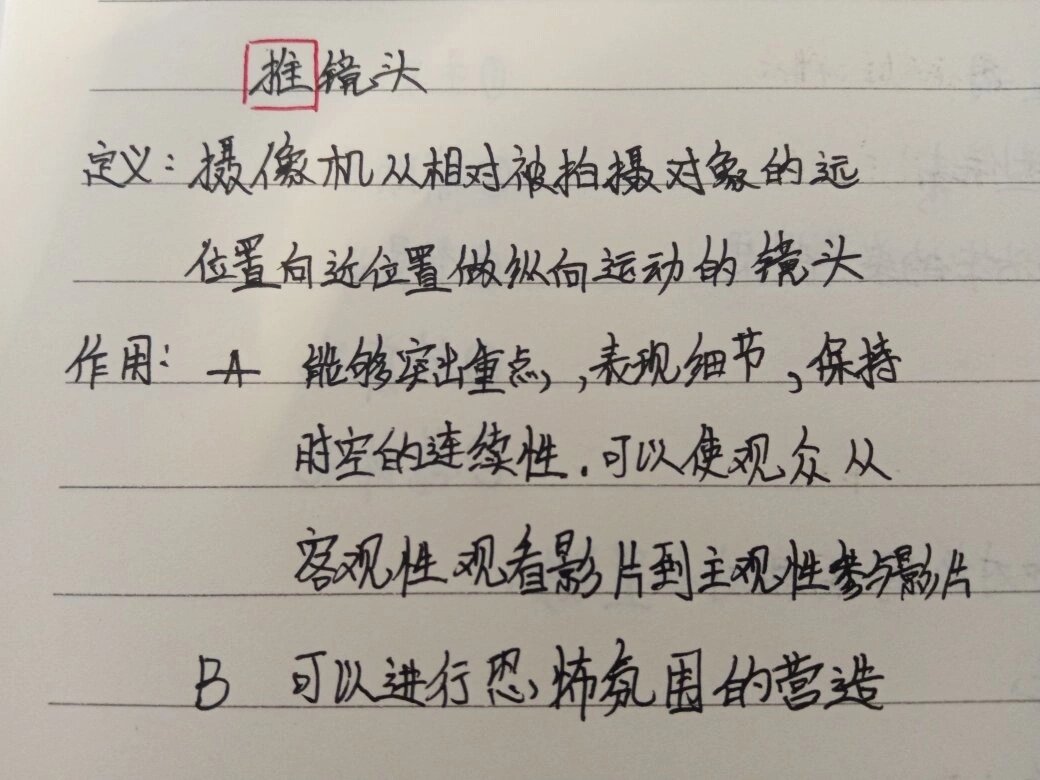 推镜头
定义：摄像机从相对被拍摄对象的远
位置向近位置做纵向运动的镜头
作用：A 能够突出重点，，表现细节，保持
时空的连续性．可以使观众从
客观性观看影片到主观性参与影片
B 可以进行恐怖氛围的营造